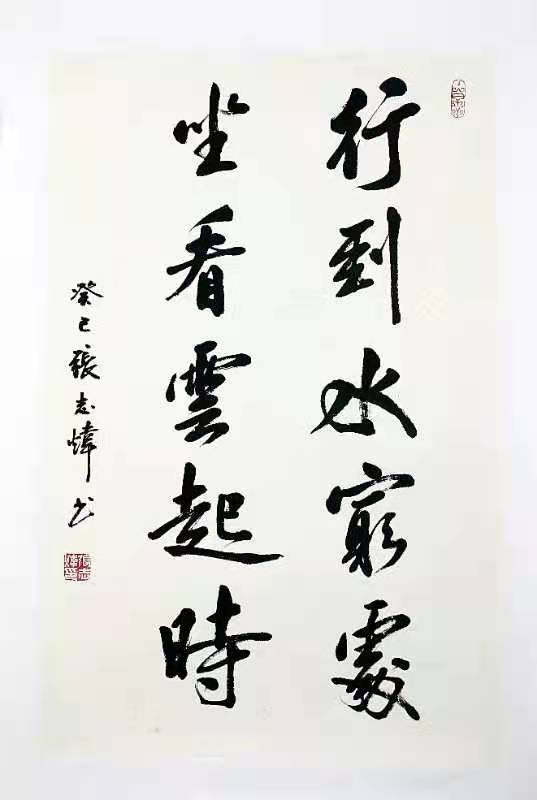 行到水窮處
坐看雲起時
癸巳張志煒书